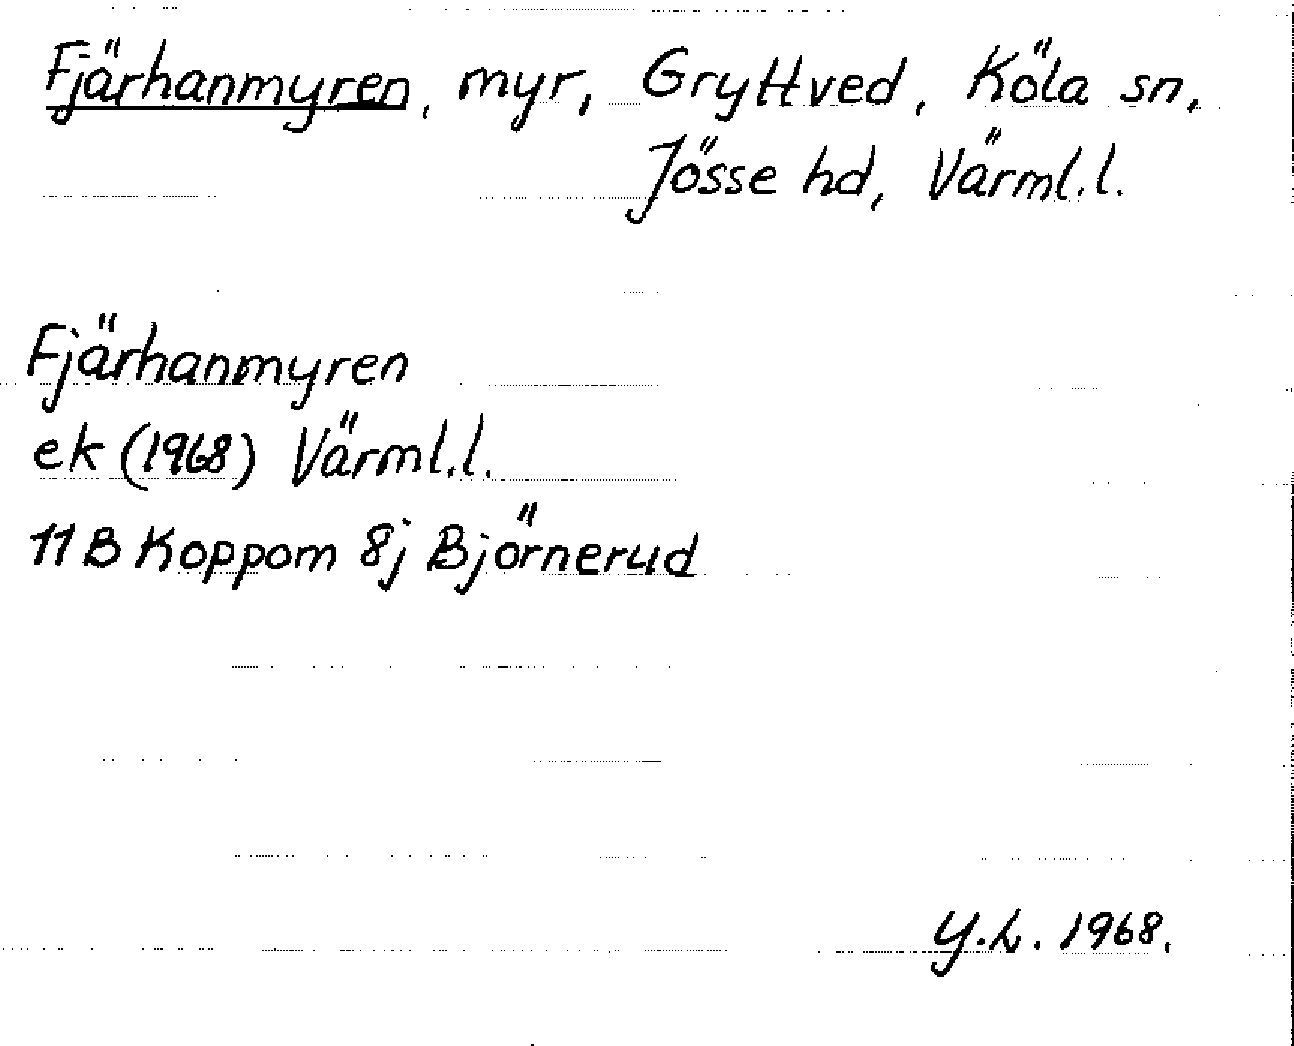 Fjärhanmyren, myr, Gryttved, Köla sn,
Jösse hd, Värml.l.
Fjärhanmyren
ek (1968) Värml.l.
11B Koppom 8j Björnerud
Y.L. 1968.